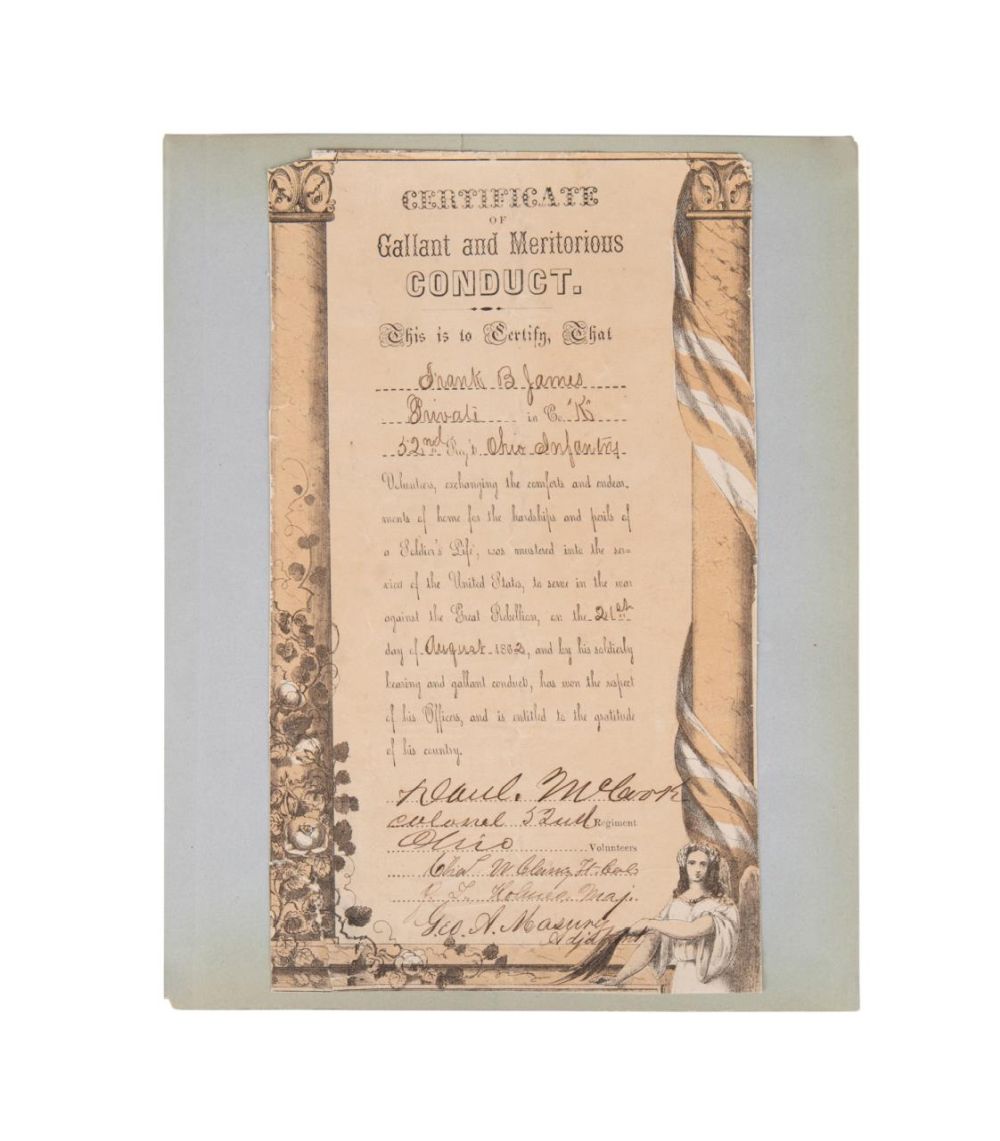 CERTIFICATE
OF
Gallant and Meritorious
CONDUCT.
This is to Certify, That
Frank B James
Private in Co. "K"
52nd Reg't Ohio Infantry
Volunteers, exchanging the comforts and endear-
ments of home for the hardships and perils of
a Soldier's Life, was mustered into the ser-
vice of the United States, to serve in the war
against the Great Rebellion, on the 21st
day of August 1862, and by his soldierly
bearing and gallant conduct, has won the respect
of his Officers, and is entitled to the gratitude
of his country.
Danl. McCook
Colonel 52nd Regiment
Ohio Volunteers
Chas W Clancy Lt. Col
Holmes Maj.
Geo. A. Masury